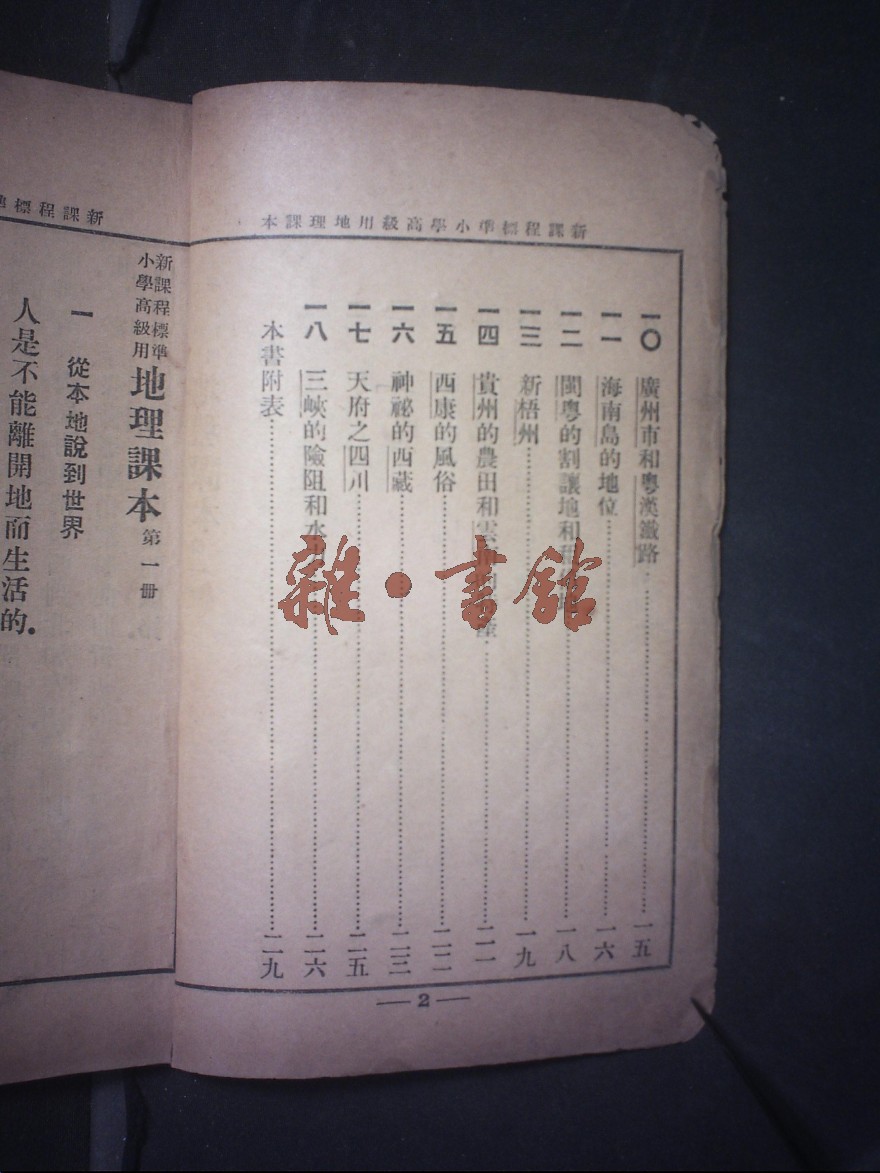 新課程標準小學高級用地理課本
一〇 廣州市和粵漢鐵路 一五
一一 海南島的地位 一六
一二 閩粵的割讓地和 一八
一三 新梧州 一九
一四 貴州的農田和雲南的 產 二一
一五 西康的風俗 二二
一六 神祕的西藏 二三
一七 天府之四川 二五
一八 三峽的險阻和水 二六
本書附表 二九
2
雜·書館
新課程標
新課程標準
小學高級用
地理課本 第一冊
一 從本地說到世界
人是不能離開地而生活的．